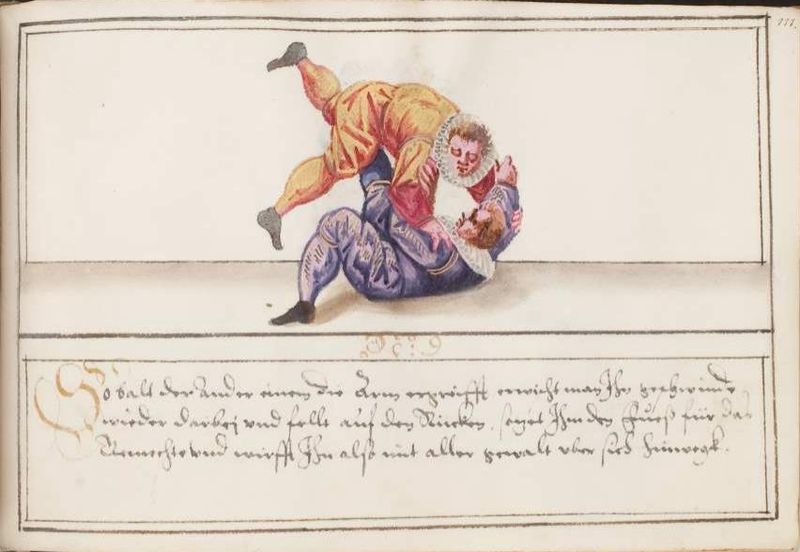 111.
No 9
Sobalt der Ander einem die Arm ergreifft erwischt man Ihn geschwinde
wieder darbej und fellt auf den Rücken, setzet Ihm den Fuess für das
Gemechte und wirfft Ihn alss mit aller gewalt uber sich hinwegk.